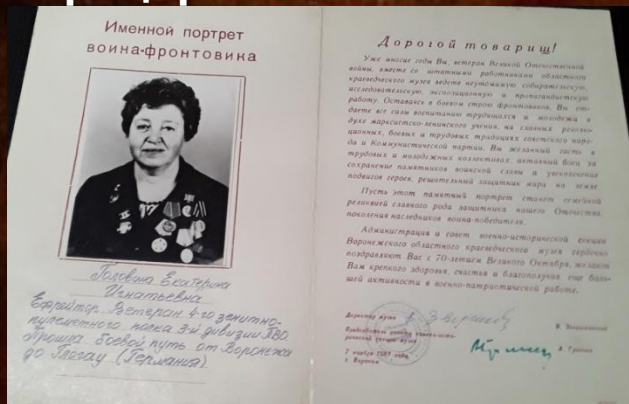 Именной портрет
воина-фронтовика
Головина Екатерина
Игнатьевна
Ефрейтор. Ветеран 4-го зенитно-
пулеметного полка 3-й дивизии ПВО.
Прошла боевой путь от Воронежа
до Глогау (Германия).
Дорогой товарищ!
Уже многие годы Вы, ветеран Великой Отечественной
войны, вместе со штатными работниками областного
краеведческого музея ведете неутомимую собирательскую,
исследовательскую, экспозиционную и пропагандистскую
работу. Оставаясь в боевом строю фронтовиков, Вы от-
даете все силы воспитанию трудящихся и молодежи в
духе марксистско-ленинского учения, на славных револю-
ционных, боевых и трудовых традициях советского наро-
да и Коммунистической партии. Вы желанный гость в
трудовых и молодежных коллективах, активный боец за
сохранение памятников воинской славы и увековечение
подвигов героев, решительный защитник мира на земле.
Пусть этот памятный портрет станет семейной
реликвией славного рода защитника нашего Отечества,
поколения наследников воина-победителя.
Администрация и совет военно-исторической секции
Воронежского областного краеведческого музея сердечно
поздравляют Вас с 70-летием Великого Октября, желают
Вам крепкого здоровья, счастья и благополучия, еще боль-
шей активности в военно-патриотической работе.
Директор музея
Председатель совета военно-исто-
рической секции музея
7 ноября 1987 года,
г. Воронеж